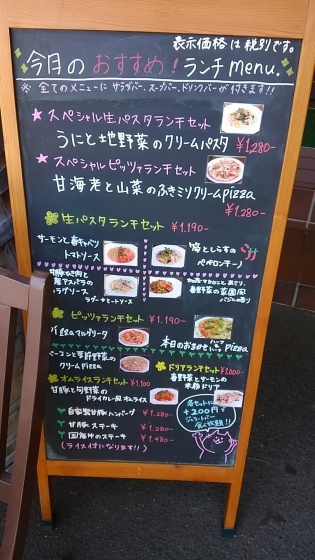 表示価格は税別です。
今月のおすすめ!ランチmenu.
※全てのメニューにサラダバー、スープバー、ドリンクバーが付きます!!
★スペシャル生パスタランチセット
うにと地野菜のクリームパスタ ¥1,280-
★スペシャルピッツァランチセット
甘海老と山菜のふきミソクリームpizza
¥1,280-
生パスタランチセット ¥1.190-
サーモンと春キャベツ
トマトソース
としらすの
ペペロンチーノ
アスパラの
ラグーソース
春野菜の菜園風
ピッツァランチセット ¥1.190-
pizzaマルゲリータ
本日のおまかせ pizza
ベーコンと
クリームpizza
ドリアランチセット ¥1,000
春野菜とサーモンの
米粉ドリア
オムライスランチセット ¥1.100
甘豚と旬野菜の
ドライカレー風オムライス
自家製甘豚ハンバーグ ¥1.280-
甘豚ステーキ ¥1.280-
国産牛のステーキ ¥1,480-
(ライス付になります!!)
各セットに
+200円で
ジェラートバー
食べ放題!!